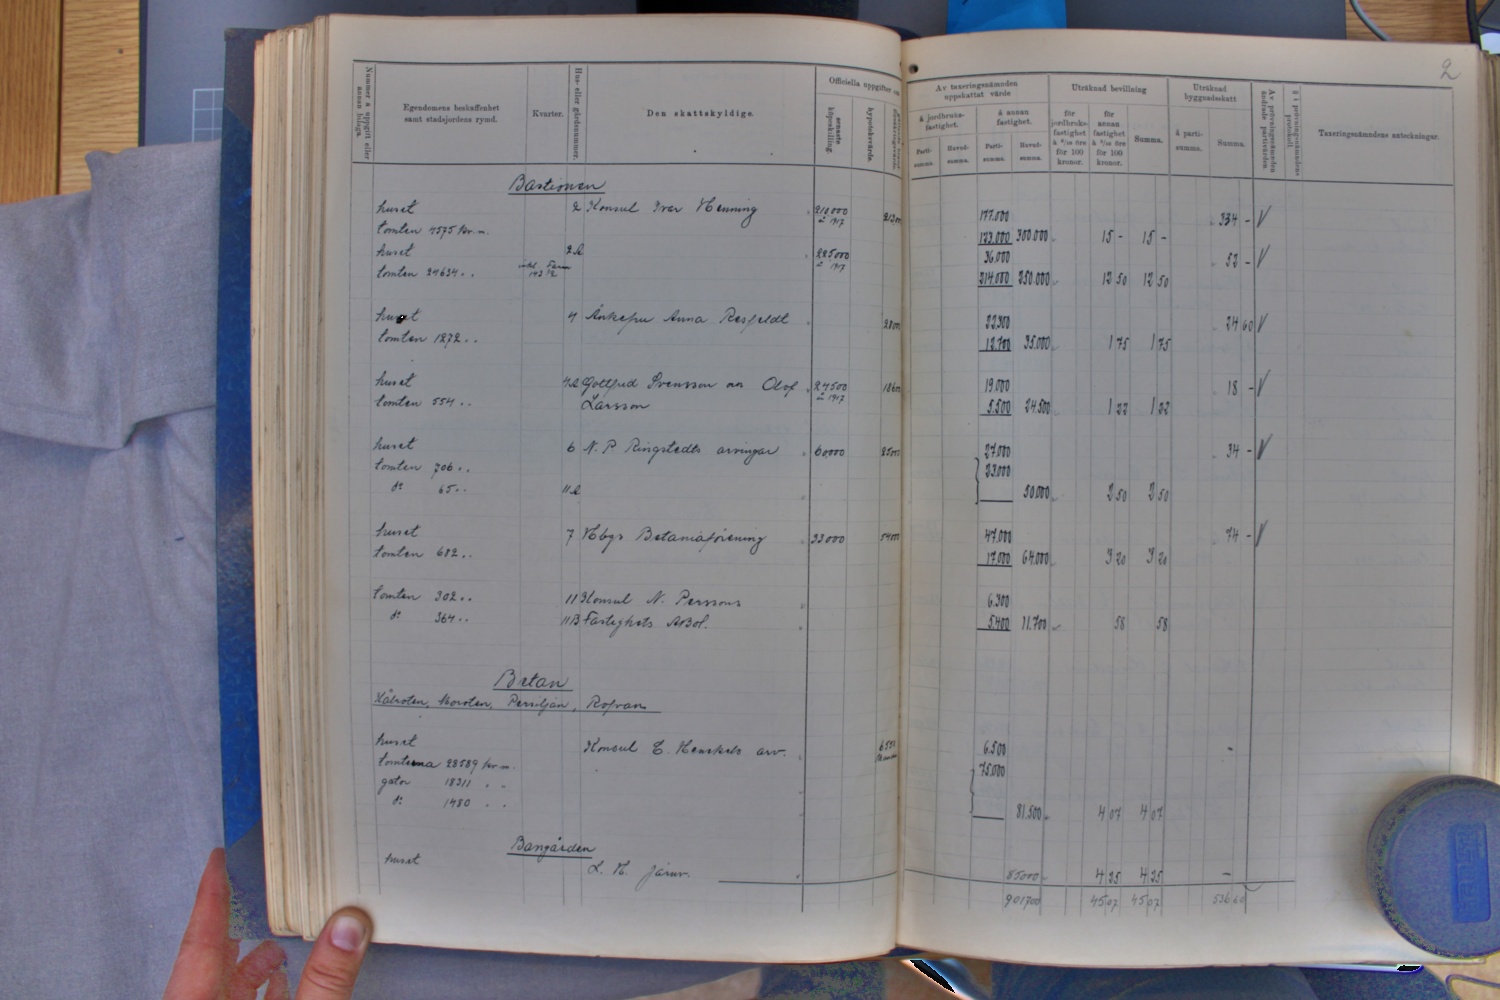 2
Nummer å uppgift eller annan bilaga.
Egendomens beskaffenhet samt stadsjordens rymd.
Kvarter.
Hus- eller gårdsnummer.
Den skattskyldige.
Officiella uppgifter
senaste köpeskilling.
hypoteksvärde.
Av taxeringsnämnden uppskattat värde
å jordbruksfastighet.
å annan fastighet.
Partisumma.
Huvudsumma.
Partisumma.
Huvudsumma.
Uträknad bevillning
för jordbruksfastighet å 6/10 öre för 100 kronor.
för annan fastighet å 5/10 öre för 100 kronor.
Summa.
Uträknad byggnadsskatt
å partisumma.
Summa.
Av prövningsnämnden ändrade partivärden
§ i prövningsnämndens protokoll.
Taxeringsnämndens anteckningar.
Bastionen
huset 2 Konsul Ivar Henning 218000 177.000 334 - V
tomten 4575 kv.m. 1917 173.000 300.000 15 - 15 -
huset 2 B 225000 36.000 52 - V
tomten 24634 " 1917 214.000 250.000 12 50 12 50
huset 4 Änkefru Anna Rosfeldt 22.300 24 60 V
tomten 1272 " 12.700 35.000 1 75 1 75
huset 4 B Gottfrid Svensson och Olof 24500 19.000 18 - V
tomten 554 " Larsson 1917 5.500 24.500 1 22 1 22
huset 6 N. P Ringstedts arvingar 60000 27.000 34 - V
tomten 706 " 23.000
d:o 65 " 11 B 50.000 2 50 2 50
huset 7 Hbgs Betaniaförening 33000 47.000 74 - V
tomten 682 " 17.000 64.000 3 20 3 20
tomten 302 " 11 Konsul N. Perssons 6.300
d:o 364 " 11 B Fastighets A.Bol. 5.400 11.700 58 58
Betan
Kålroten, Moroten, Persiljan, Rofvan
huset Konsul C. Henckels arv. 6.500 -
tomterna 28589 kv.m. 75.000
gator 18311 " "
d:o 1480 " " 81.500 4 07 4 07
Bangården
huset L. H. järnv. 85000 4 25 4 25 -
901700 45 07 45 07 536 60